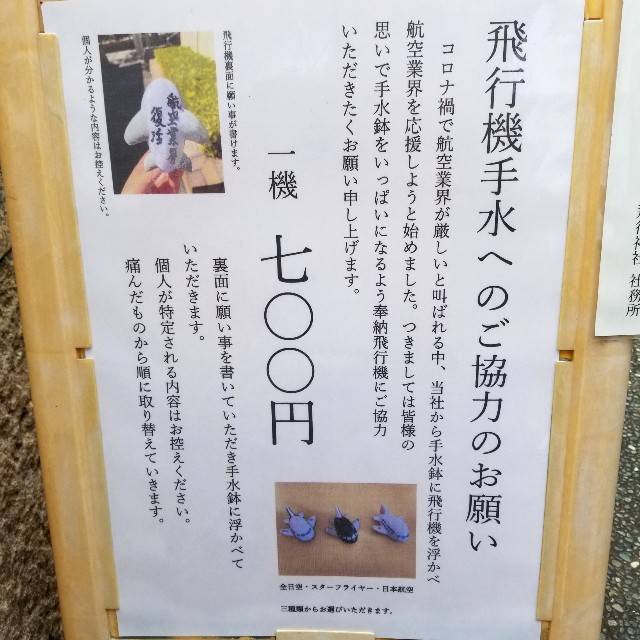 飛行機手水へのご協力のお願い
コロナ禍で航空業界が厳しいと叫ばれる中、当社から手水鉢に飛行機を浮かべ
航空業界を応援しようと始めました。つきましては皆様の
思いで手水鉢をいっぱいになるよう奉納飛行機にご協力
いただきたくお願い申し上げます。
一機 七〇〇円
飛行機裏面に願い事が書けます。
航空業界
復活
個人が分かるような内容はお控えください。
裏面に願い事を書いていただき手水鉢に浮かべて
いただきます。
個人が特定される内容はお控えください。
痛んだものから順に取り替えていきます。
全日空・スターフライヤー・日本航空
三種類からお選びいただきます。
社務所